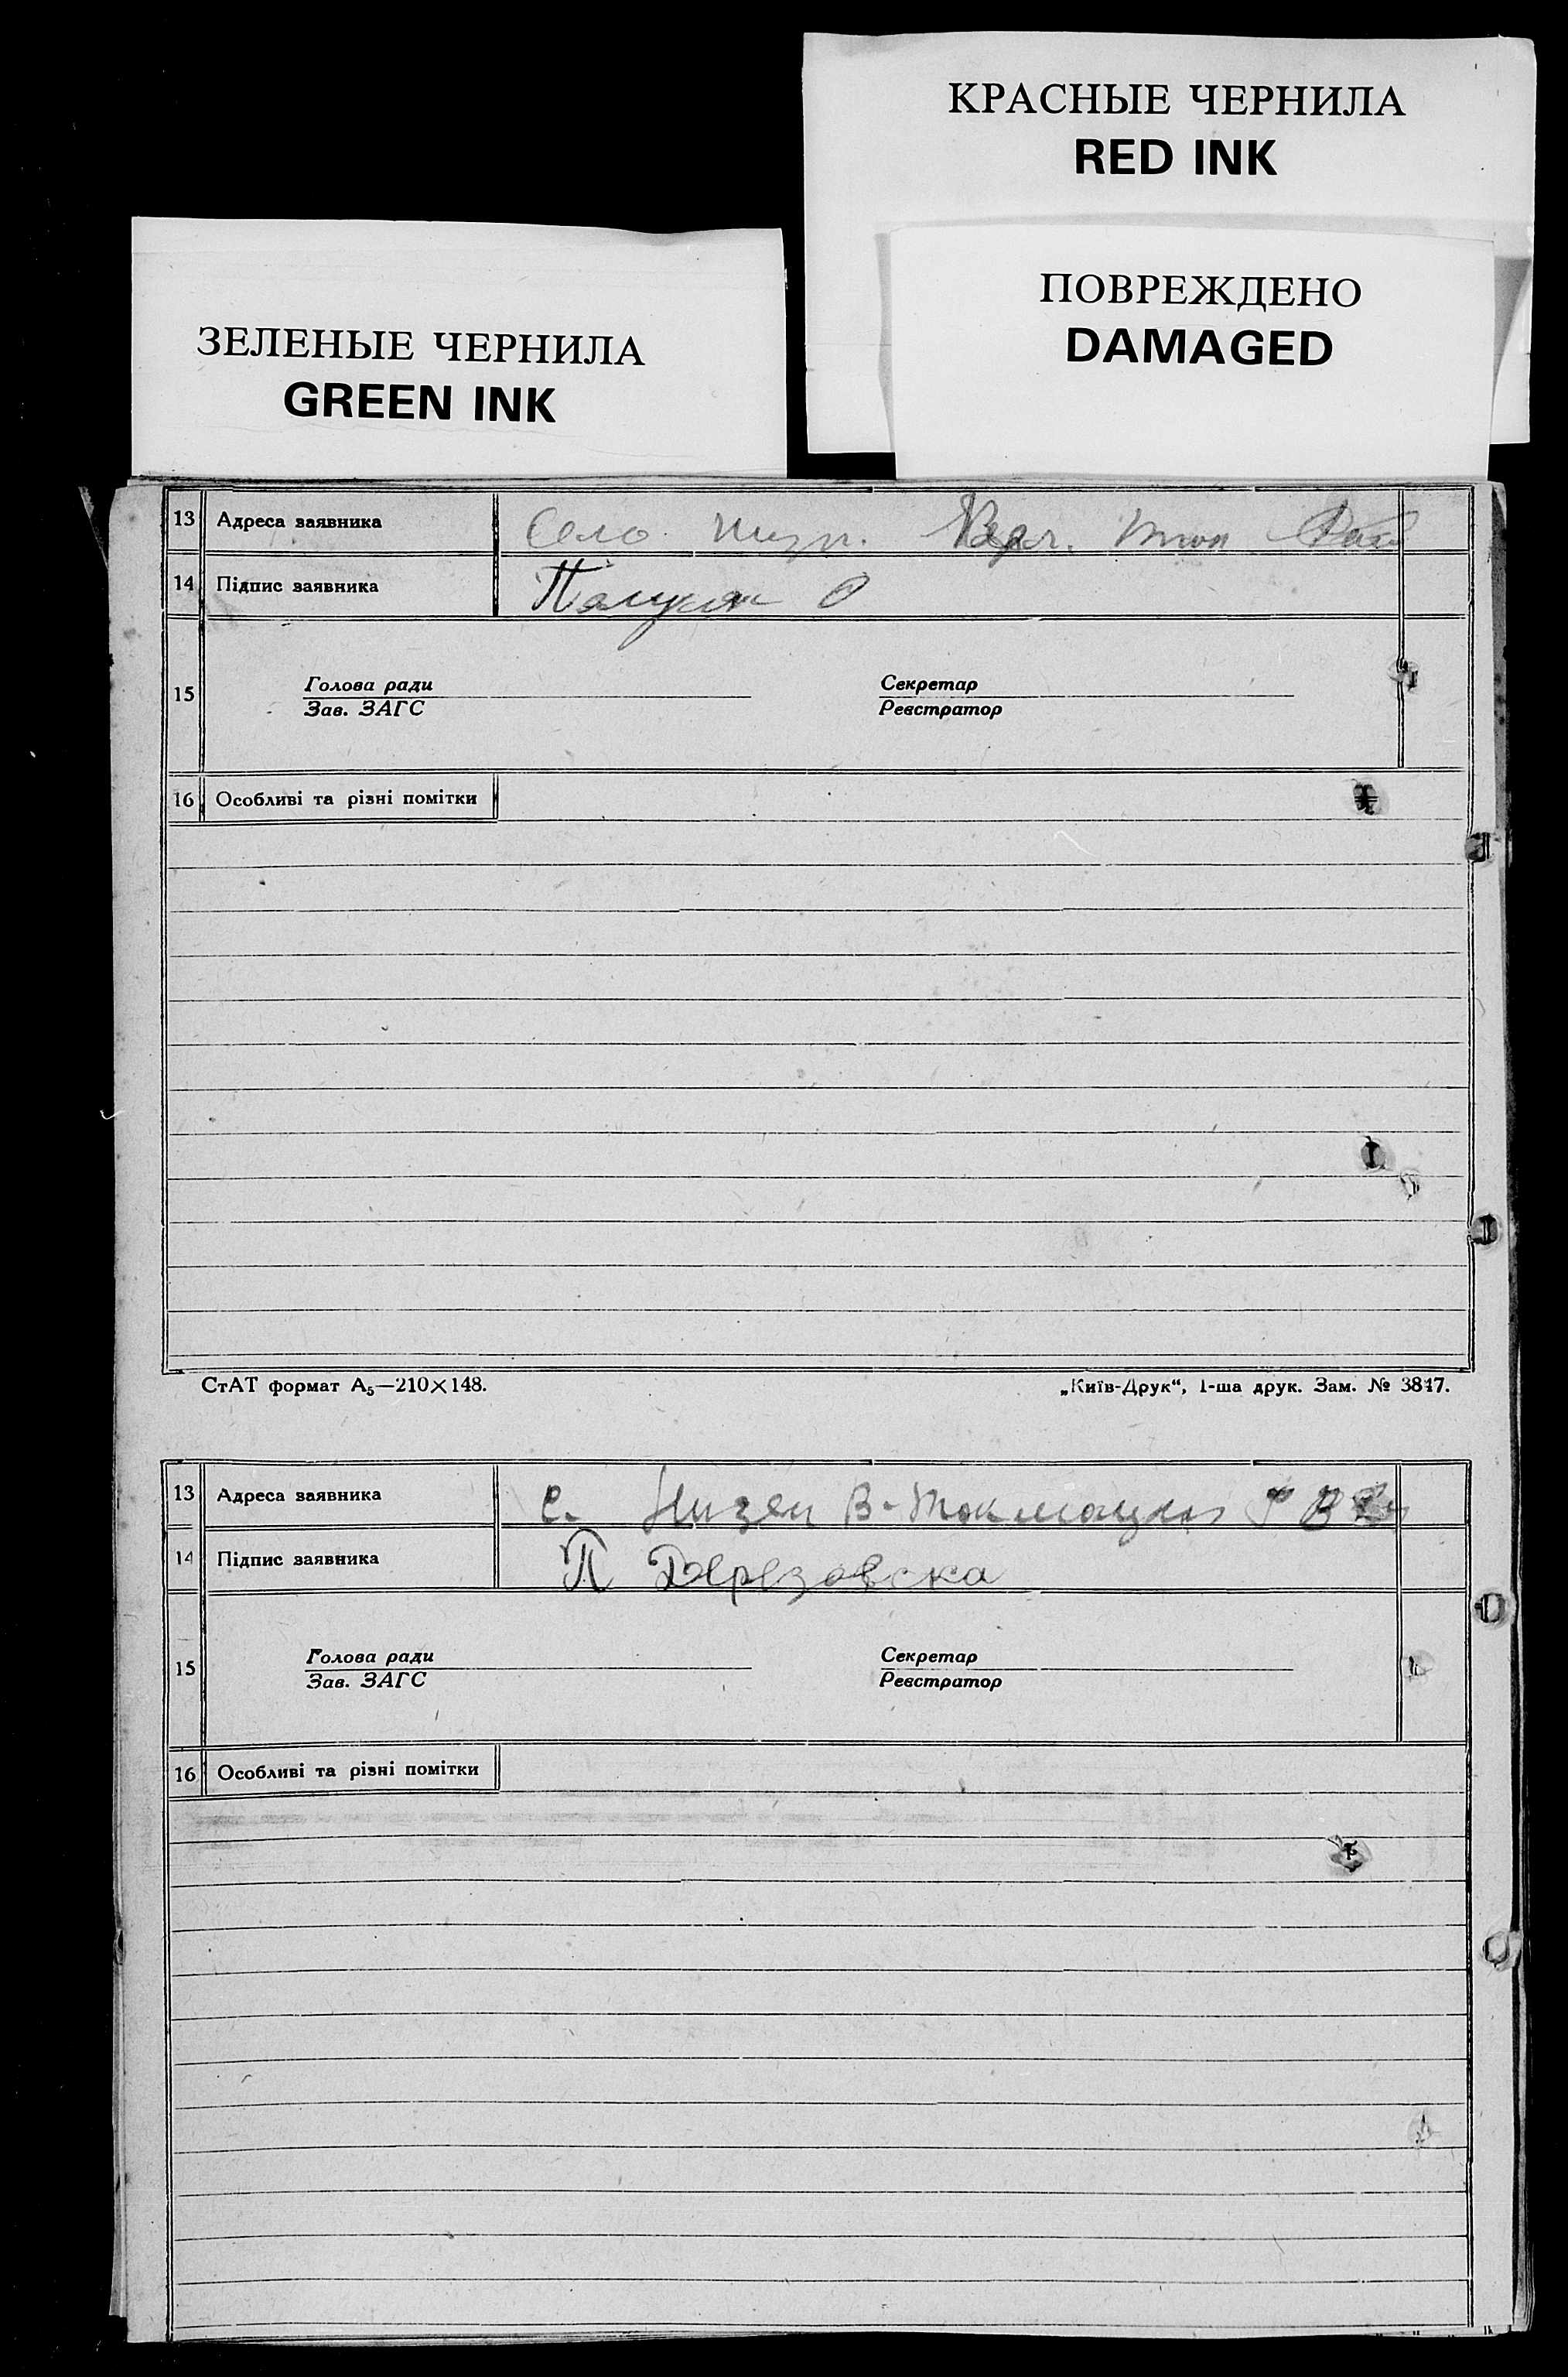 КРАСНЫЕ ЧЕРНИЛА
RED INK
ПОВРЕЖДЕНО
DAMAGED
ЗЕЛЕНЫЕ ЧЕРНИЛА
GREEN INK
13 Адреса заявника Село
14 Підпис заявника
15 Голова ради Секретар
Зав. ЗАГС Реєстратор
16 Особливі та різні помітки
СтАТ формат А₅—210×148. „Київ-Друк“, 1-ша друк. Зам. № 3847.
13 Адреса заявника с. Низяни В-Токмацкий
14 Підпис заявника П
15 Голова ради Секретар
Зав. ЗАГС Реєстратор
16 Особливі та різні помітки